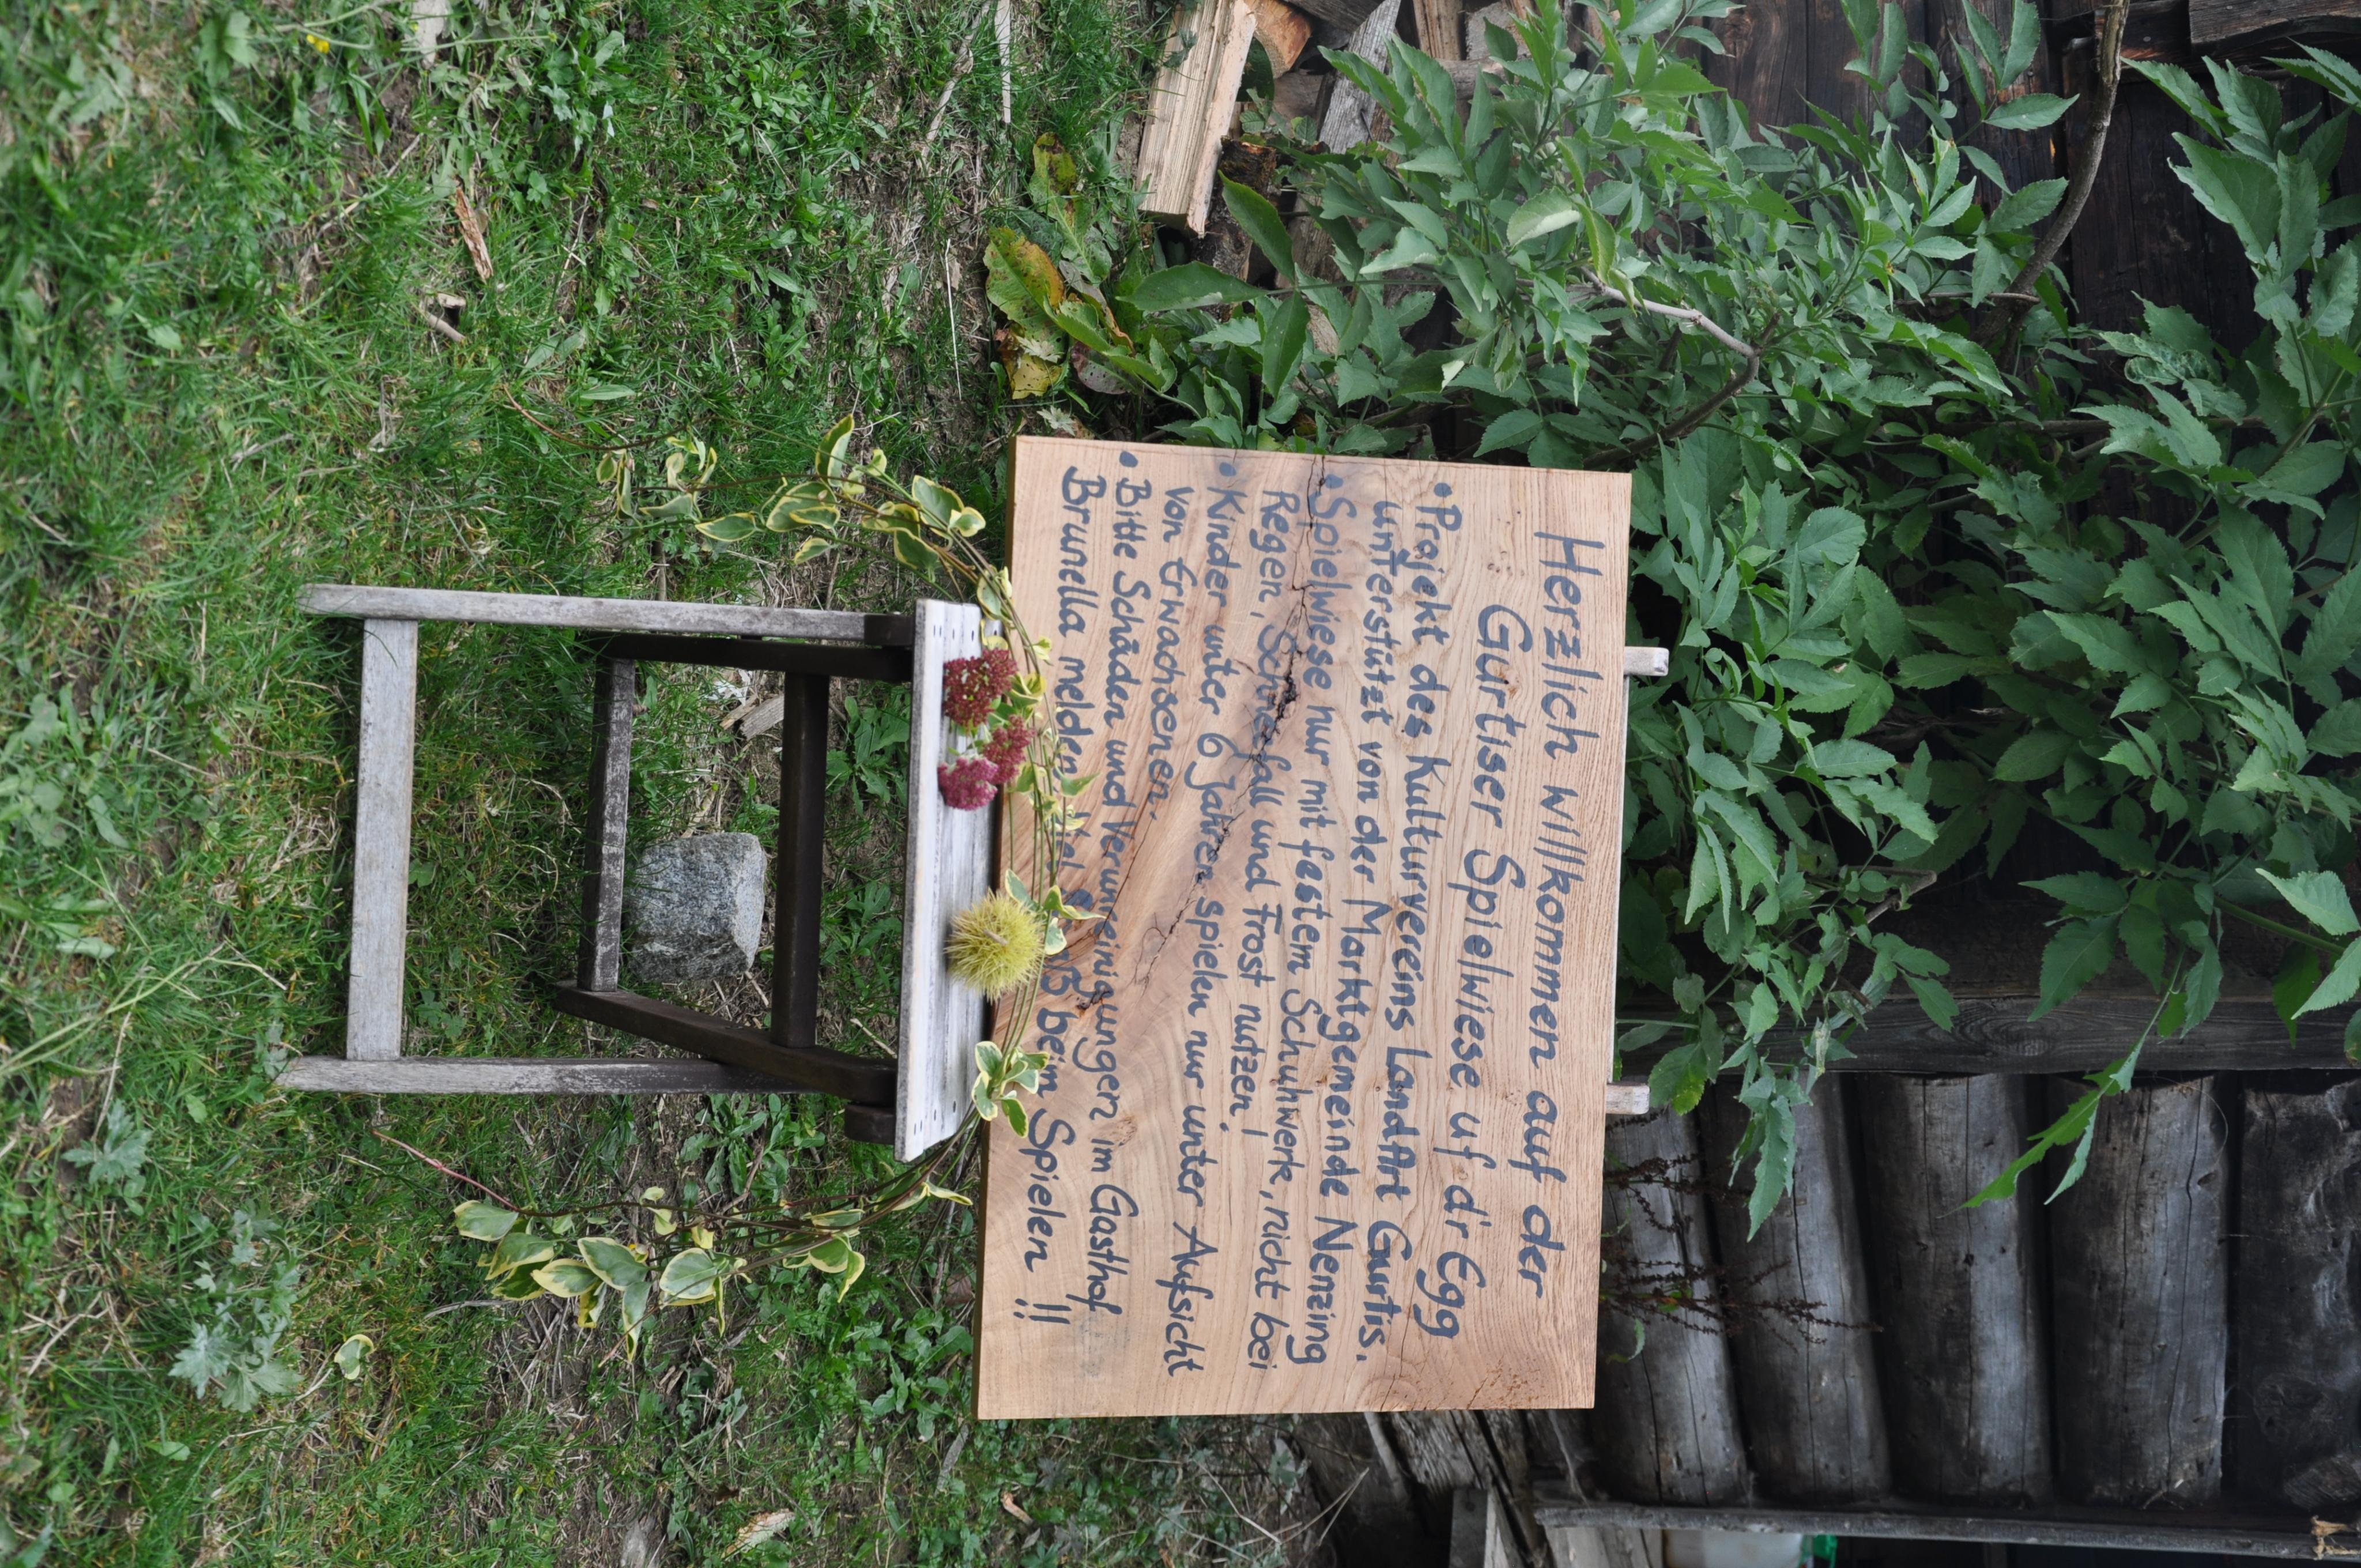 Herzlich willkommen auf der
Gurtiser Spielwiese uf d'r Egg
• Projekt des Kulturvereins LandArt Gurtis.
unterstützt von der Marktgemeinde Nenzing
• Spielwiese nur mit festem Schuhwerk, nicht bei
Regen, Schneefall und Frost nutzen!
• Kinder unter 6 Jahren spielen nur unter Aufsicht
von Erwachsenen.
• Bitte Schäden und Verunreinigungen im Gasthof
Brunella melden beim Spielen !!